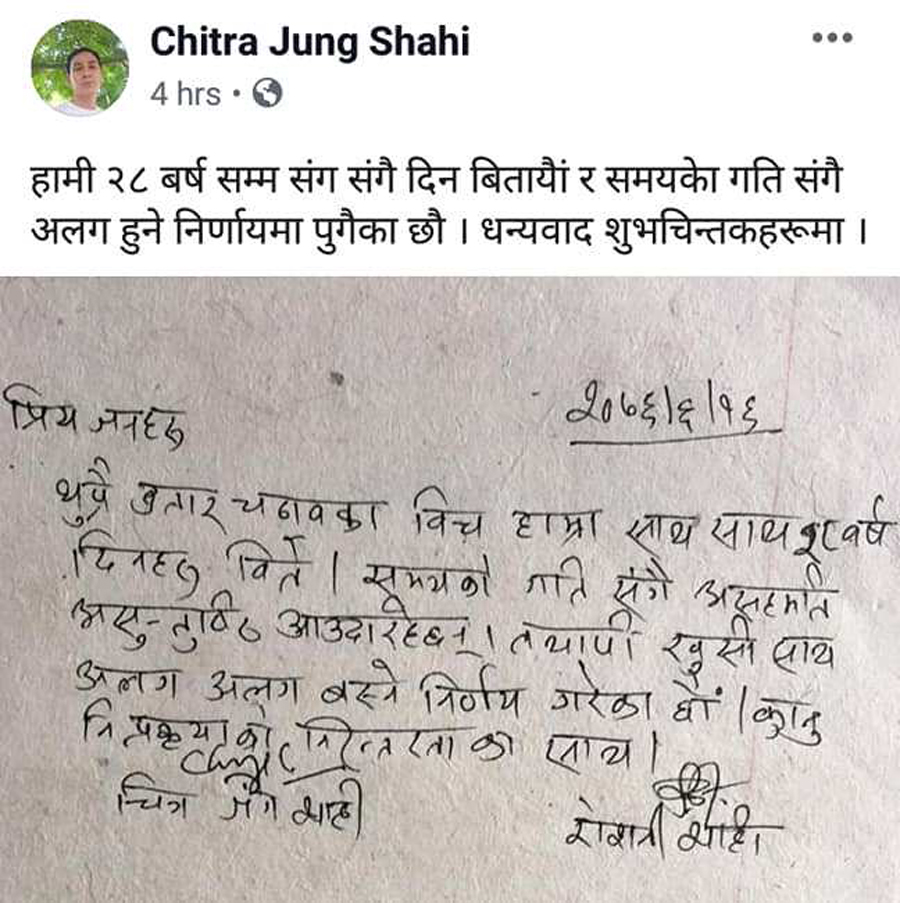 Chitra Jung Shahi
4 hrs
हामी २८ बर्ष सम्म संग संगै दिन बितायौं र समयको गति संगै
अलग हुने निर्णायमा पुगेका छौ । धन्यवाद शुभचिन्तकहरूमा ।
२०७६/६/१६
प्रिय जनहरु
थुप्रै उतार चढावका विच हाम्रा साथ साथ २८ वर्ष
दिनहरु विते । समयको गति संगै असहमति
असन्तुष्टि आउदारहेछन् । तथापी खुसी साथ
अलग अलग बस्ने निर्णय गरेका छौं । कानु
नि प्रकृयाको निरन्तरता का साथ ।
चित्र जंग शाही
रोशनी शाही